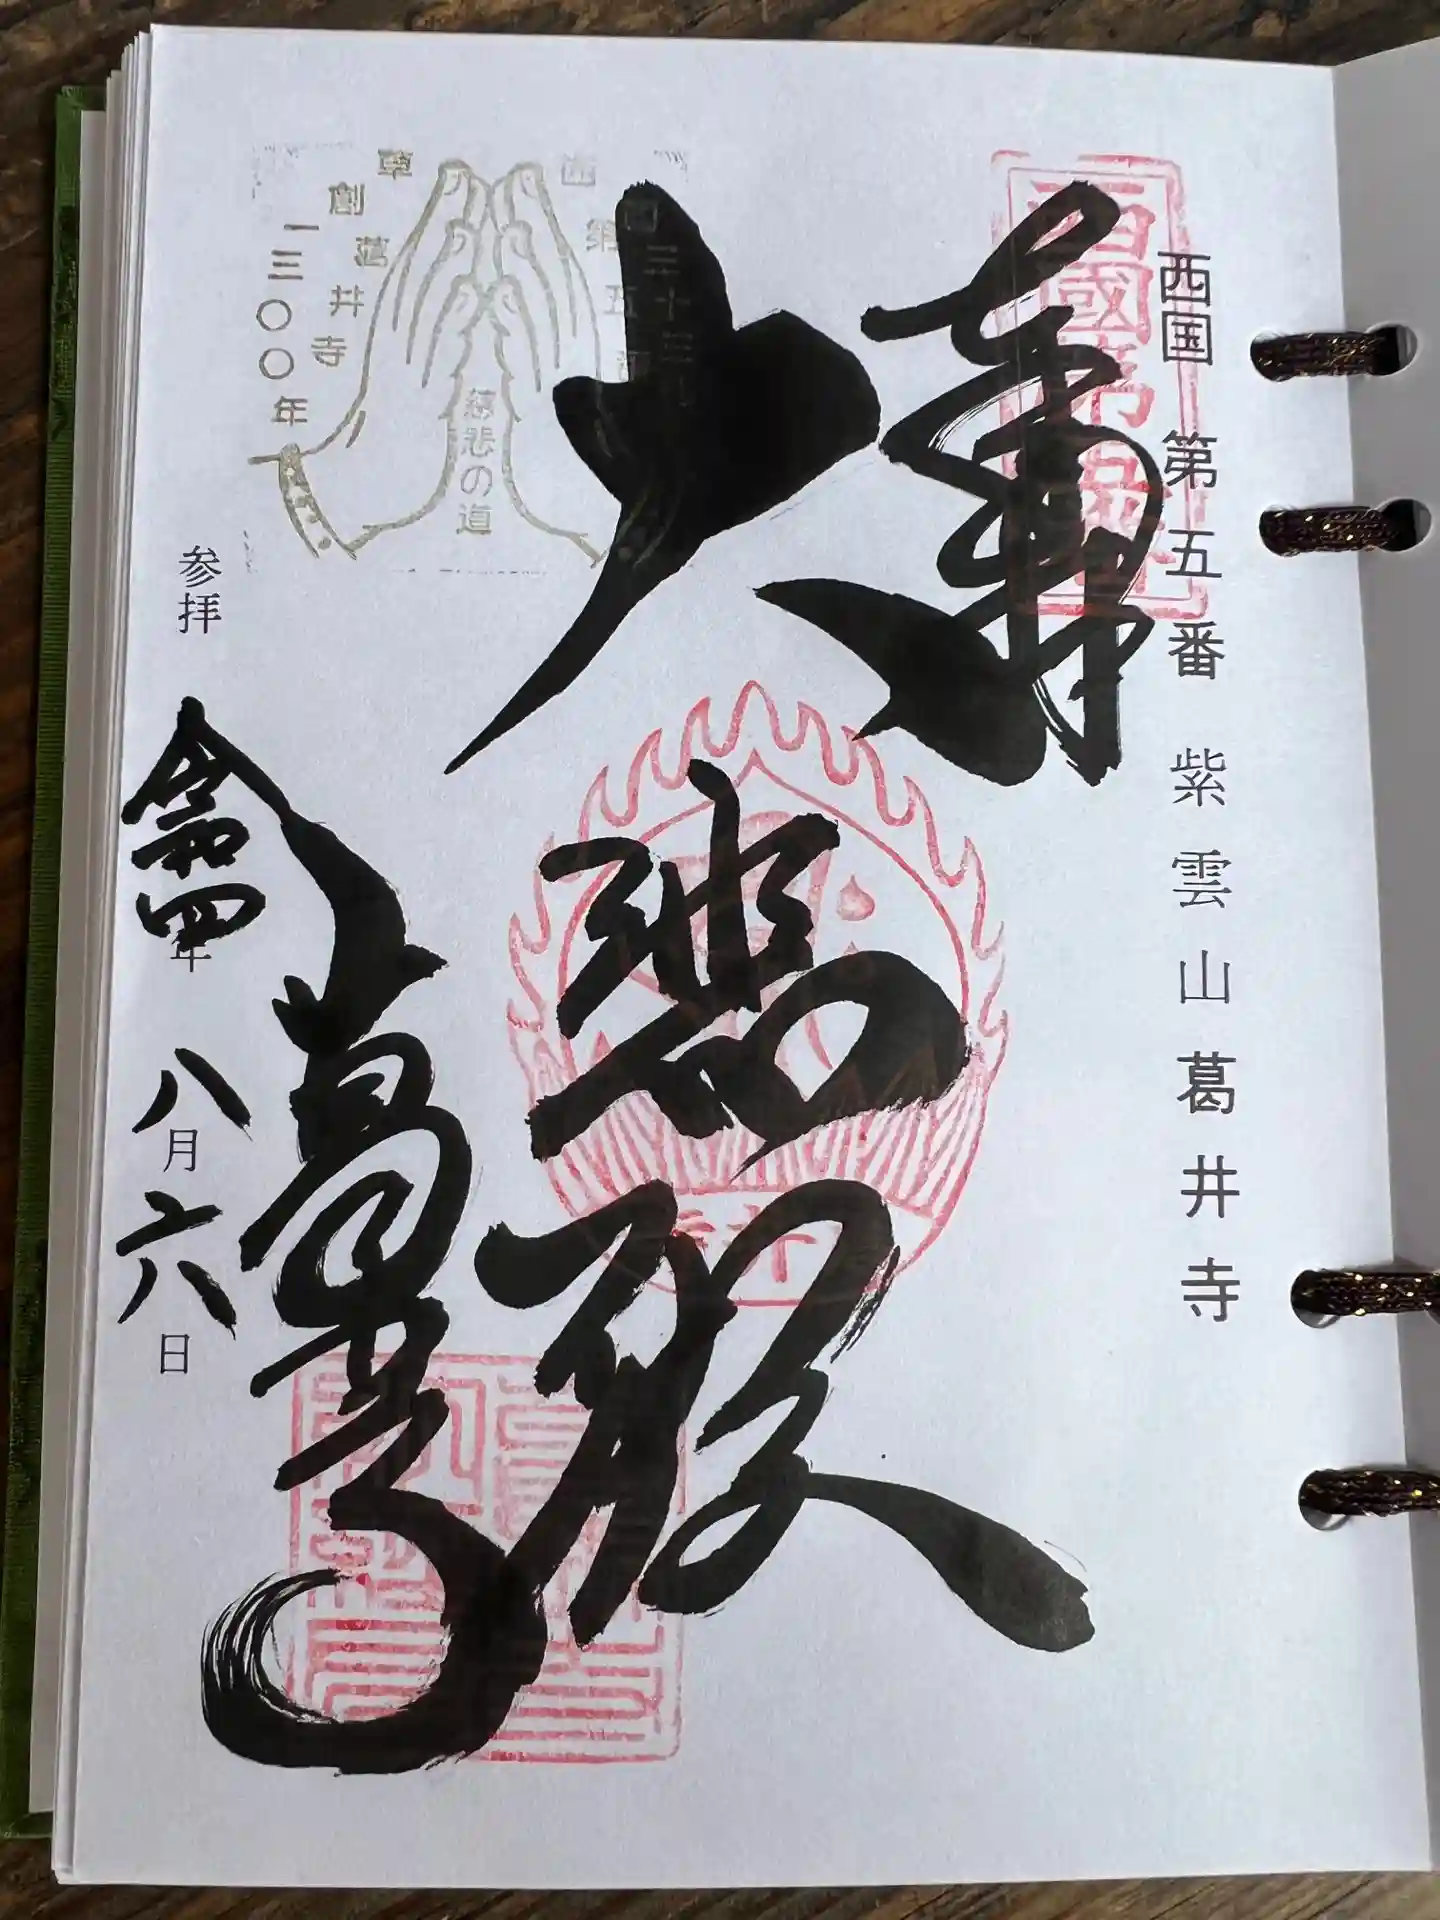 西国第五番 紫雲山葛井寺
奉拝
大悲殿
葛井寺
参拝 令和四年 八月六日
西國第五番
西国三十三所
第五番
草創一三〇〇年
葛井寺
慈悲の道